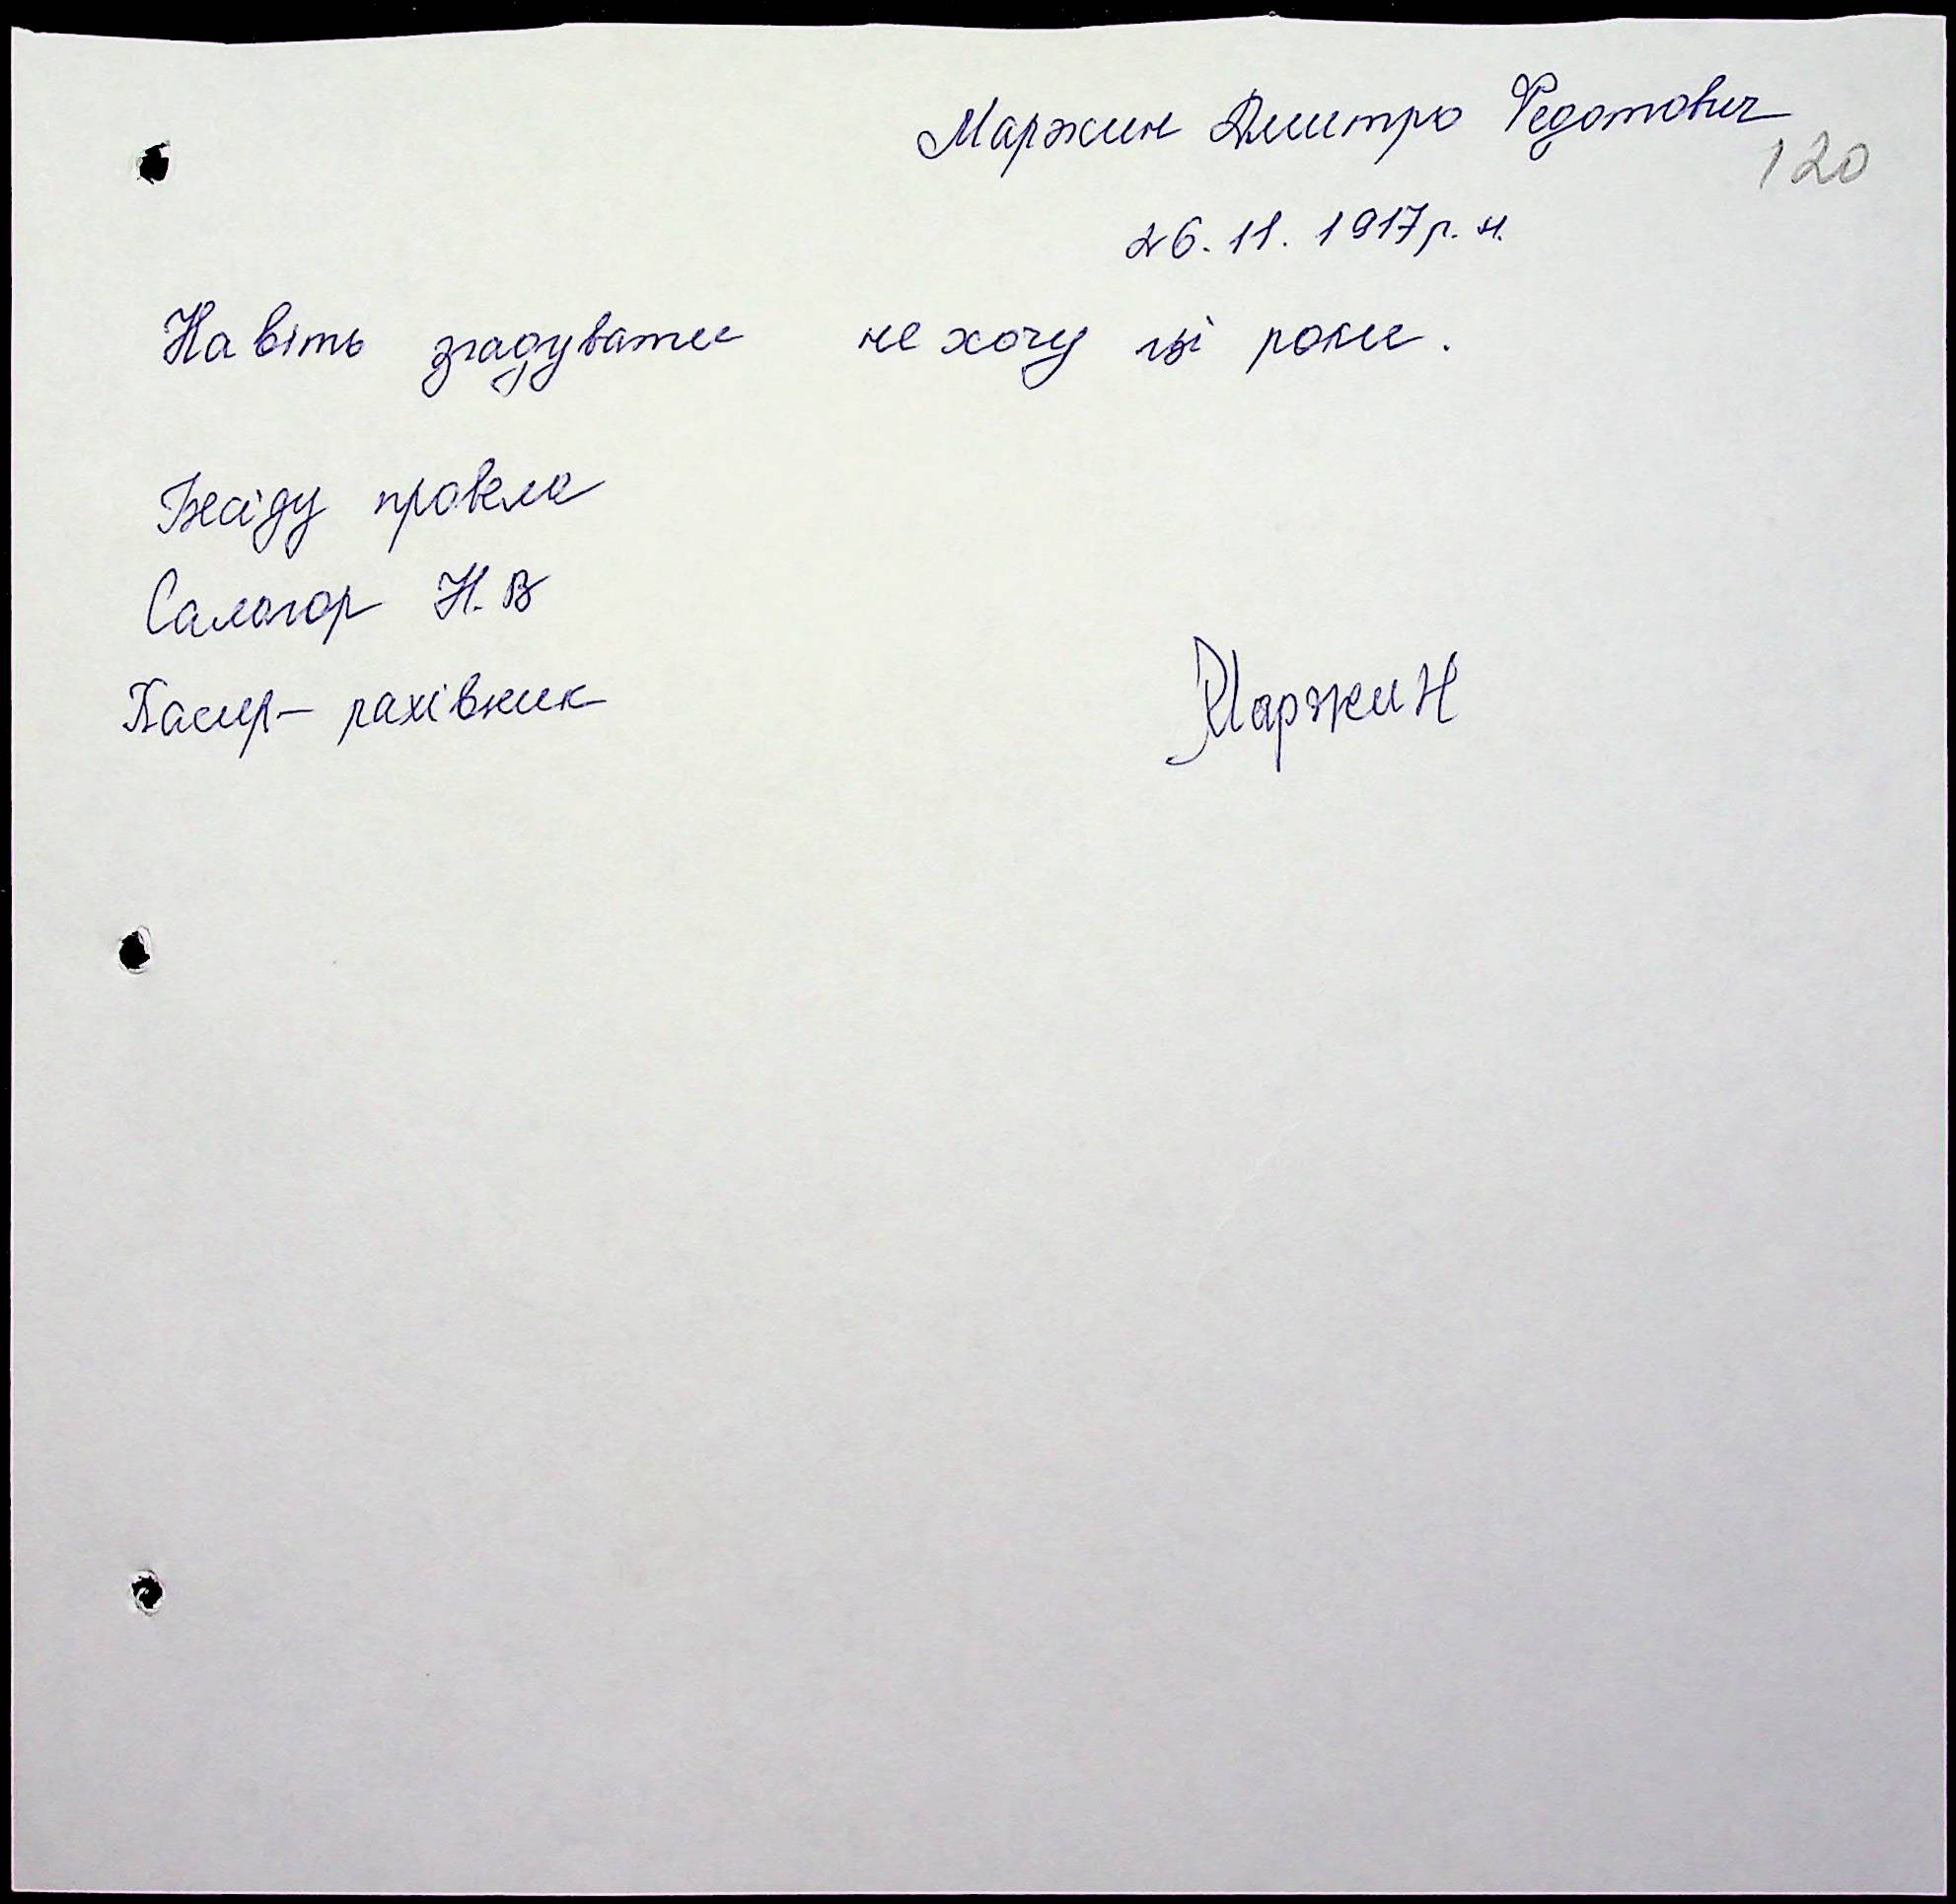 Маржин Дмитро Федотович
120
26.11.1917р.н.
Навіть згадувати не хочу ці роки.
Бесіду провела
Салогор Н.В
Касир- рахівник
Маржин